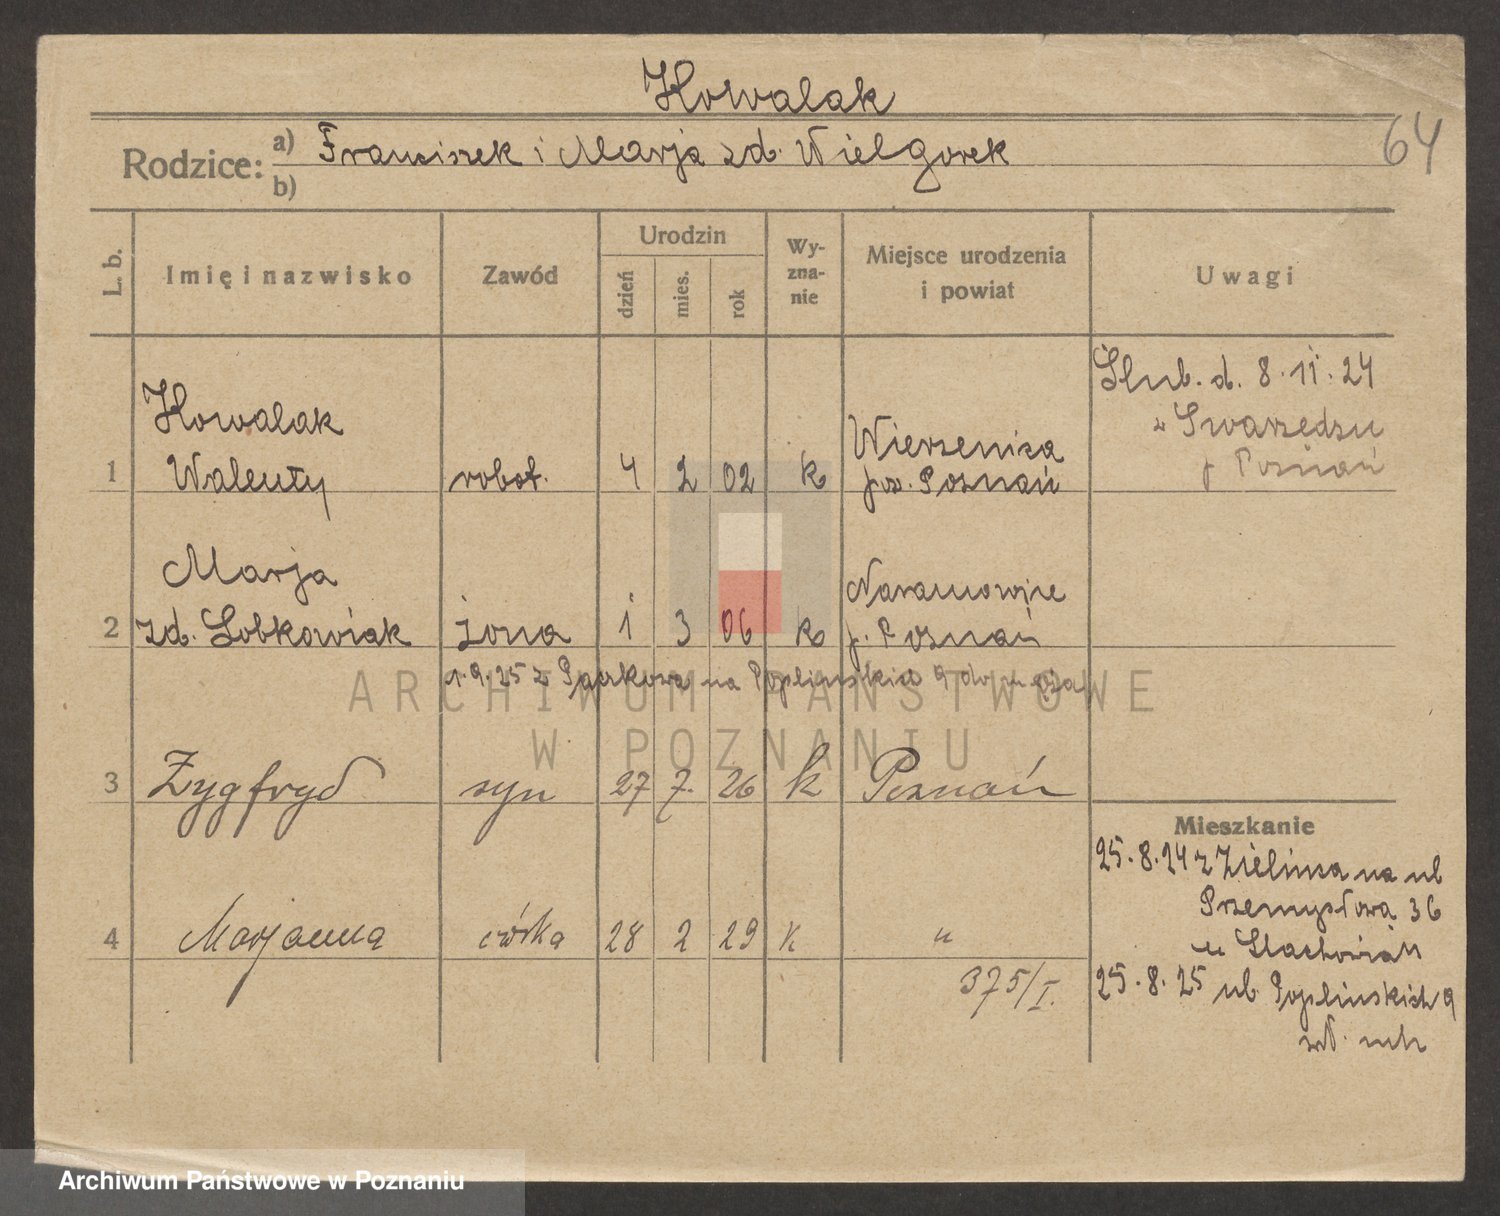 Kowalak
64
Rodzice: a) Franciszek i Marja zd. Wielgorek
b)
L. b. Imię i nazwisko Zawód Urodzin dzień mies. rok Wy-zna-nie Miejsce urodzenia i powiat Uwagi
Ślub. d. 8.11.24
w Swarzędzu
p Poznań
Kowalak
1 Walenty robot. 4 2 02 k Wierzenica
pow. Poznań
Marja
2 zd. Lobkowiak żona 1 3 06 k Naramowice
p. Poznań
1.9.25 z na Poplinskich 9 do męża
3 Zygfryd syn 27 7. 26 k Poznań
4 Marjanna córka 28 2 29 k "
375/I.
Mieszkanie
25.8.24 z Zielińca na ul
Przemysłowa 36
u Stachowiak
25.8.25 ul. Poplinskich 9
ARCHIWUM PAŃSTWOWE
W POZNANIU
Archiwum Państwowe w Poznaniu